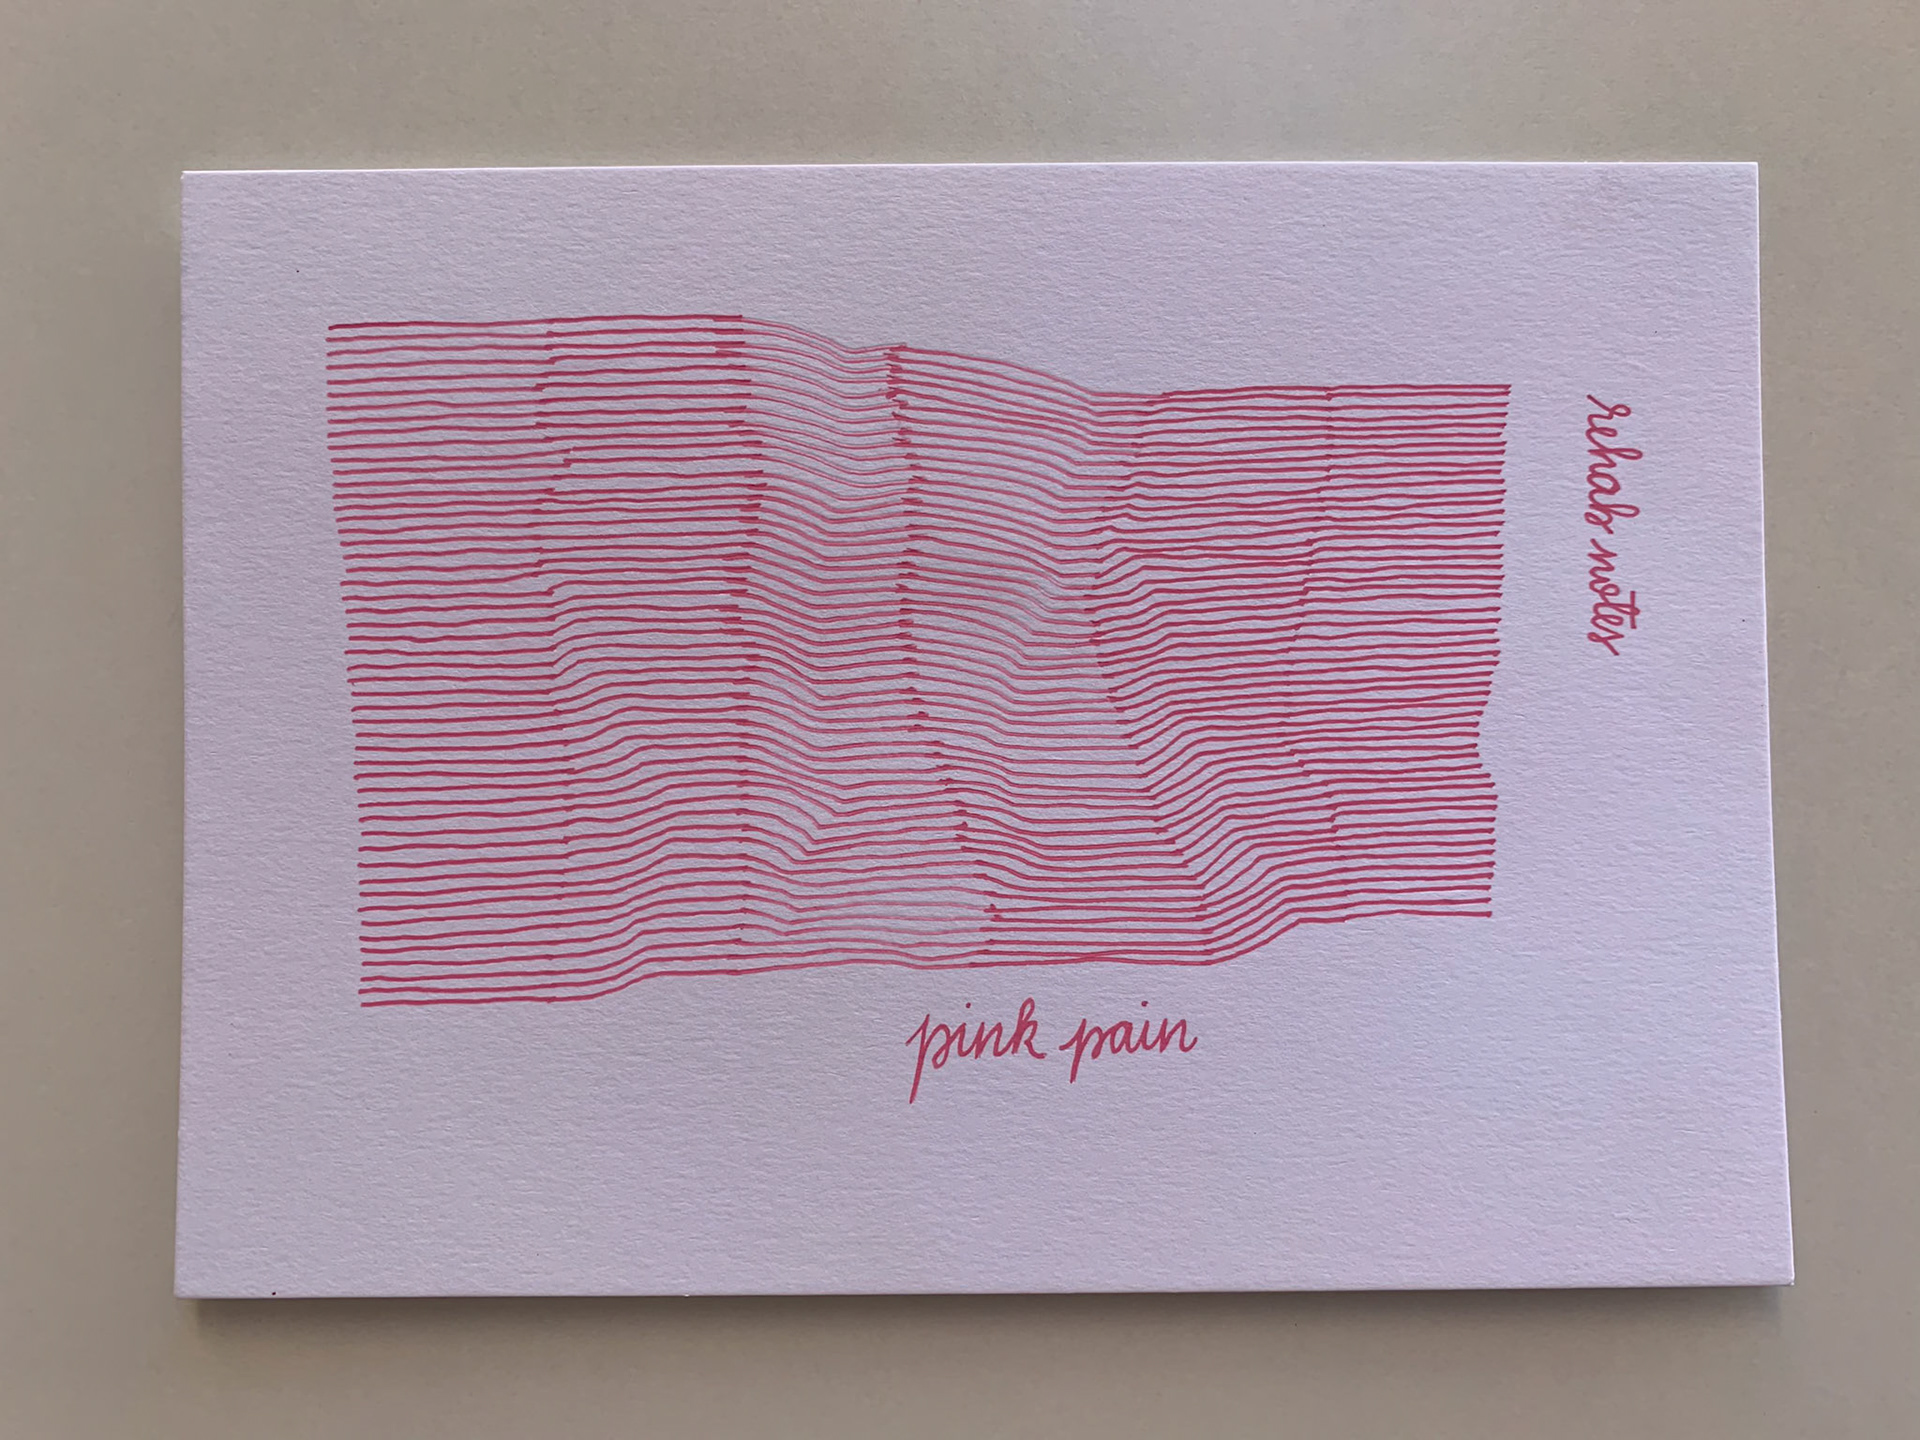 rehab notes
pink pain